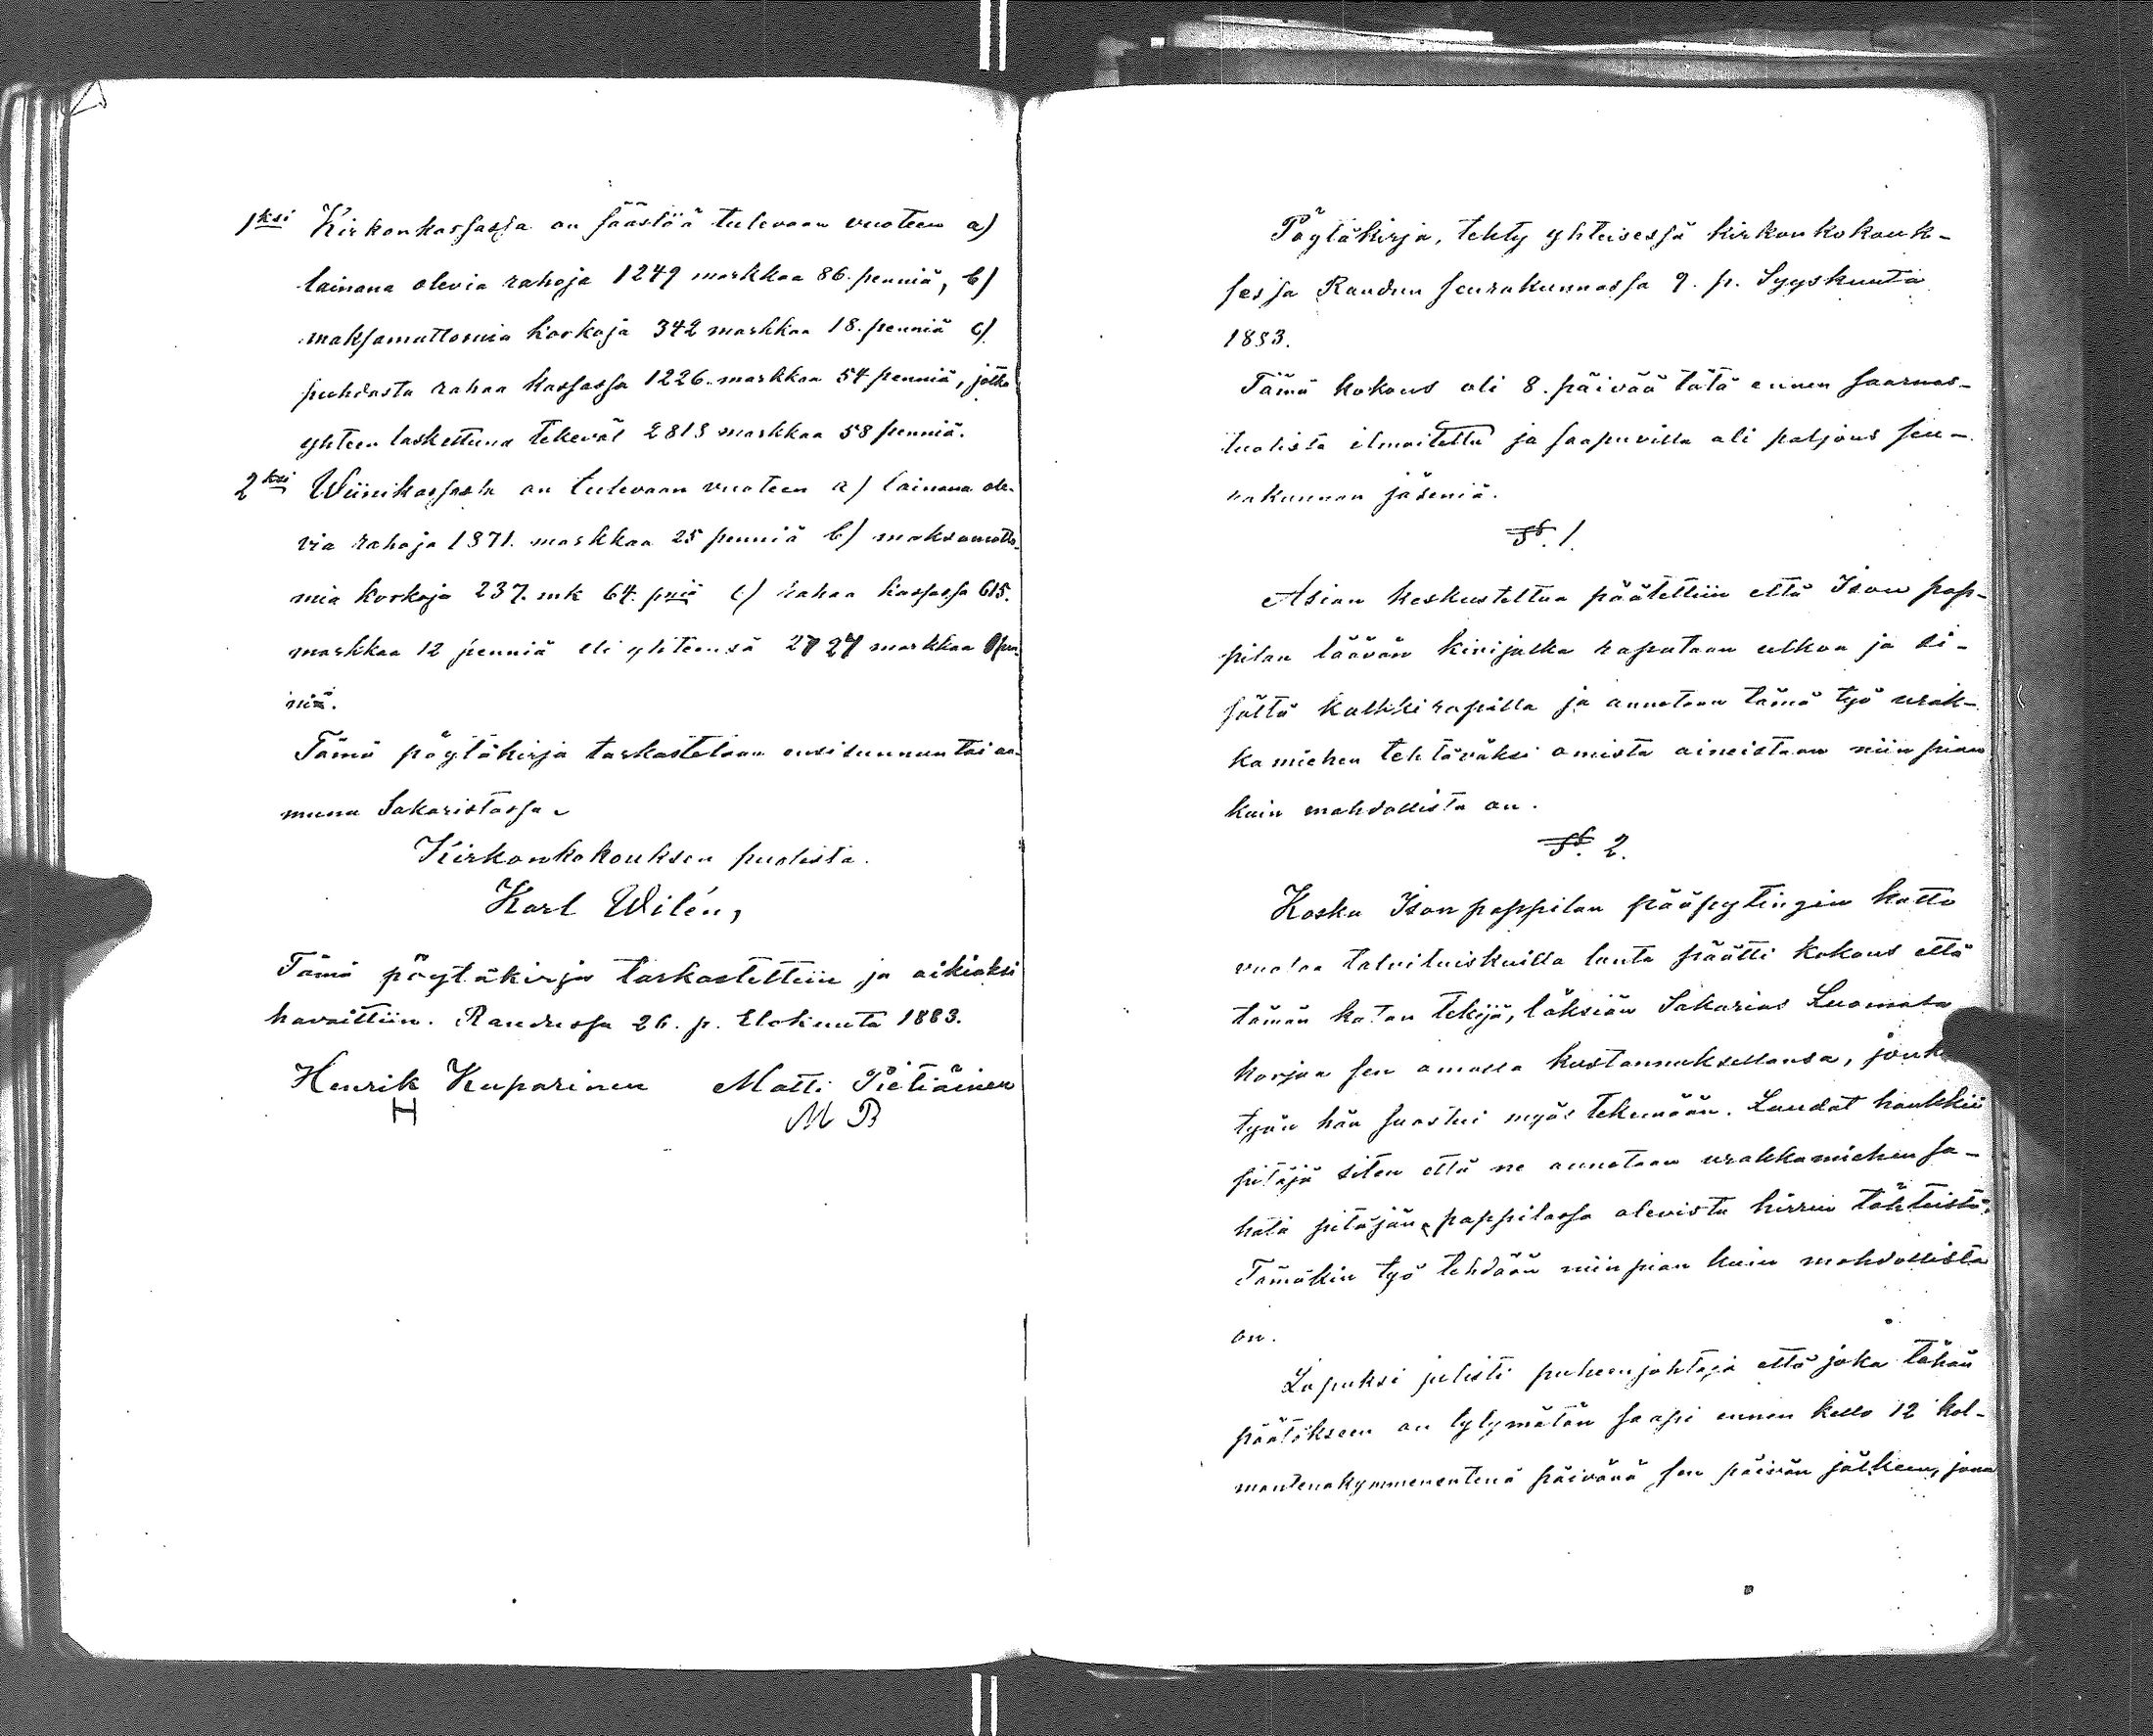 1ksi Kirkonkassassa on säästöä tulevaan vuoteen a)
lainana olevia rahoja 1249 markkaa 86. penniä, b)
maksamattomia korkoja 342 markkaa 18. penniä c)
puhdasta rahaa kassassa 1226. markkaa 54 penniä, jotka
yhteen laskettuna tekevät 2818 markkaa 58 penniä.
2ksi Wiinikassasta on tulevaan vuoteen a) lainana ole-
via rahoja 1871. markkaa 25 penniä b) maksamatto-
mia korkoja 237. mk 64. pniä c) rahaa kassassa 615.
markkaa 12 penniä eli yhteensä 2724 markkaa 1 pen-
niä.
Tämä pöytäkirja tarkastetaan ensi sunnuntai aa-
muna Sakaristassa.
Kirkonkokouksen puolesta.
Karl Wilén,
Tämä pöytäkirja tarkastettiin ja oikiaksi
havaittiin. Raudussa 26. p. Elokuuta 1883.
Henrik Kuparinen Matti Pietiäinen
H M P
Pöytäkirja, tehty yhteisessä kirkonkokouk-
sessa Raudun seurakunnassa 9. p. Syyskuuta
1883.
Tämä kokous oli 8. päivää tätä ennen saarnas-
tuolista ilmoitettu ja saapuvilla oli paljous seu-
rakunnan jäseniä.
§. 1.
Asian keskusteltua päätettiin että Ison pap-
pilan läävän kivijalka rapataan ulkoa ja si-
sältä kalkkirapilla ja annetaan tämä työ urak-
kamiehen tehtäväksi omista aineistaan niin pian
kuin mahdollista on.
§. 2.
Koska Ison pappilan pääpytingin katto
vuotaa talvituiskuilla lunta päätti kokous että
tämän katon tekijä, läksiän Sakarias Luomala
korjaa sen omalla kustannuksellansa, jonka
työn hän suostui myös tekemään. Laudat hankkii
pitäjä siten että ne annetaan urakkamiehen sa-
hata pitäjän pappilassa olevista hirren tähteistä.
Tämäkin työ tehdään niin pian kuin mahdollista
on.
Lopuksi julisti puheenjohtaja että joka tähän
päätökseen on tytymätän saapi ennen kello 12 kol-
mantenakymmenentenä päivänä sen päivän jälkeen, jona